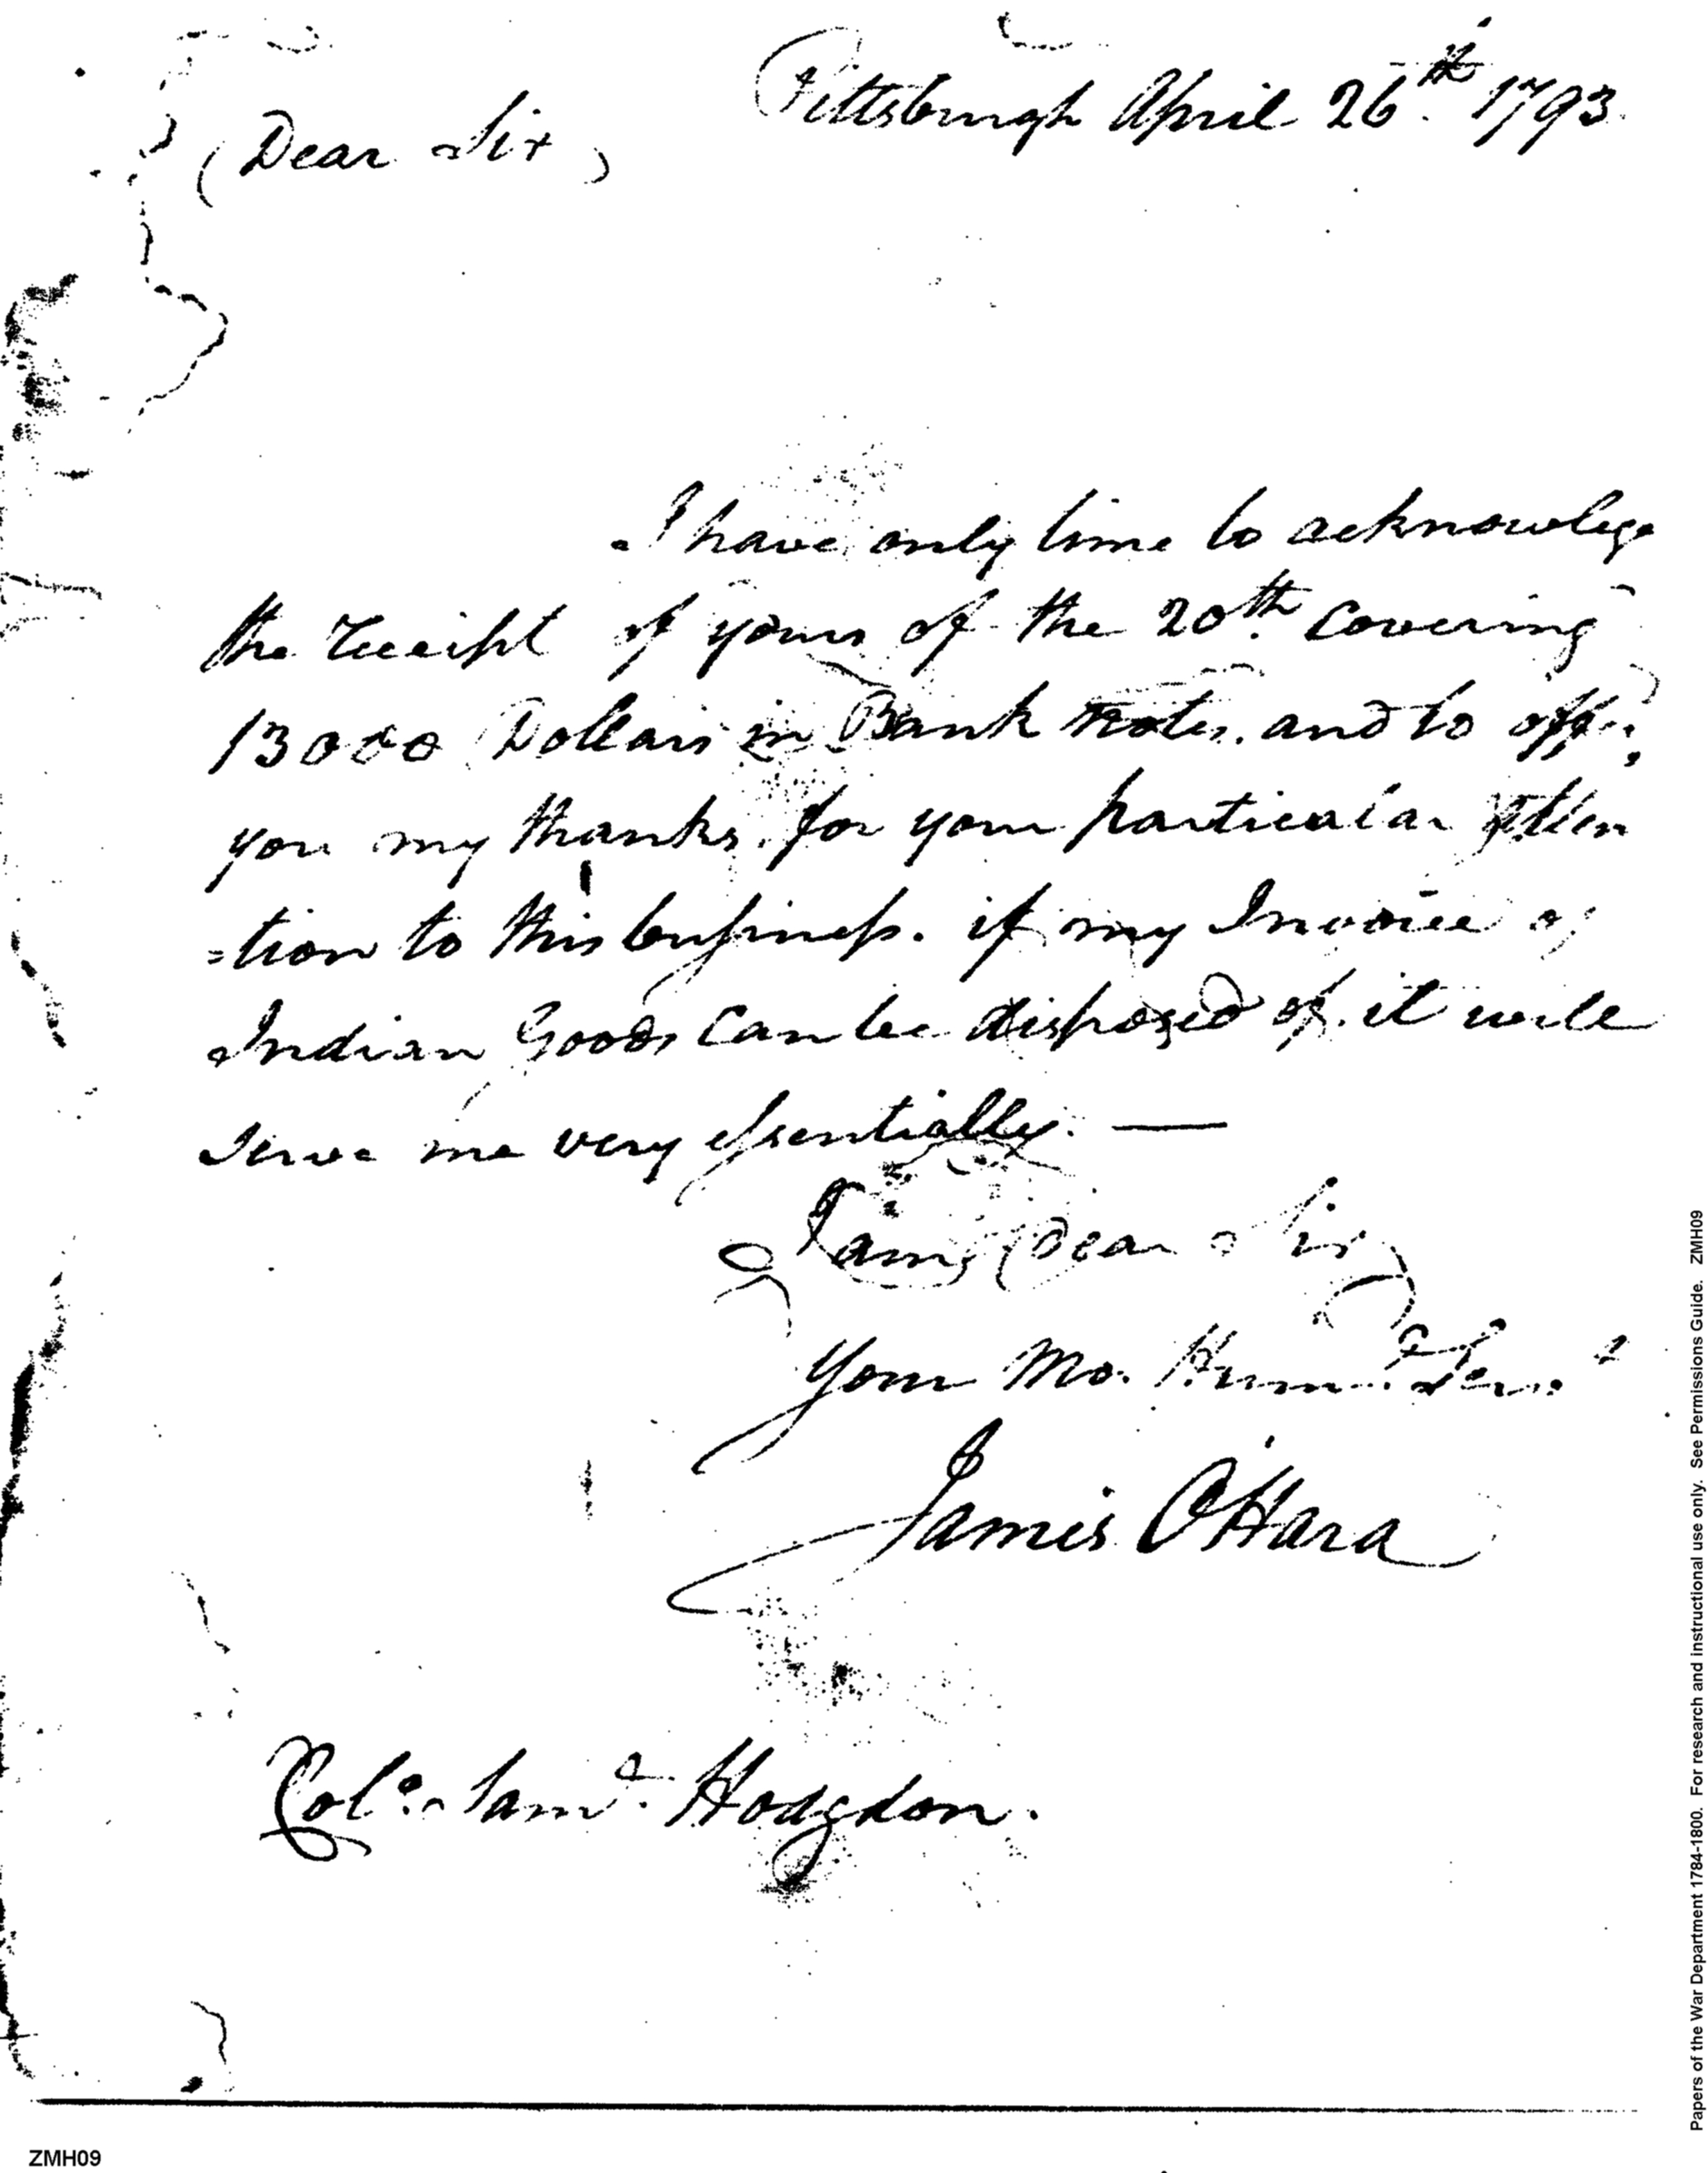 Pittsburgh April 26th. 1793.
Dear Sir,
I have only time to acknowlege
the receipt of yours of the 20th. Covering
13000 Dollars in Bank notes. and to offer
you my thanks for your particular atten
=tion to this business. if my Invoice of
Indian Goods can be disposed of. it will
serve me very essentially. —
I am, Dear Sir,
Your Mo. Hum. Servt
James O'Hara
Colo. Saml. Hodgdon.
ZMH09
Papers of the War Department 1784-1800. For research and instructional use only. See Permissions Guide. ZMH09